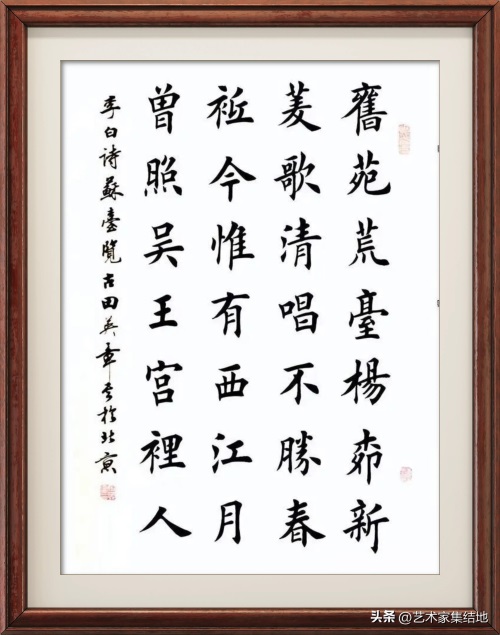 舊苑荒臺楊柳新
菱歌清唱不勝春
祗今惟有西江月
曾照吴王宫裡人
李白诗蘇臺覽古田英章书於北京
头条 @艺术家集结地